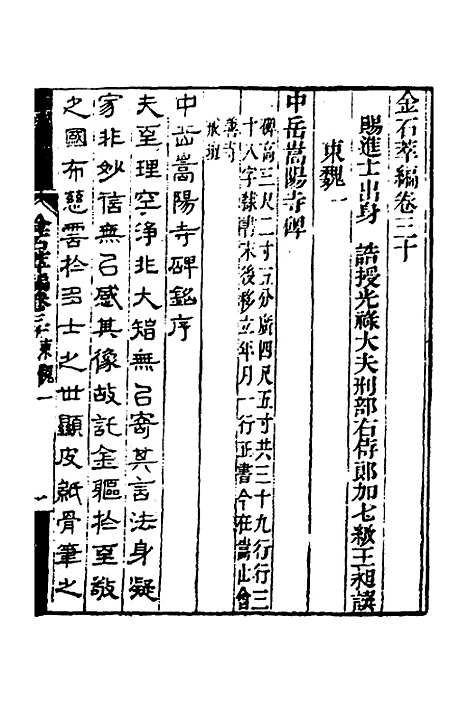 金石萃編卷三十
賜進士出身　誥授光祿大夫刑部右侍郎加七級王昶譔
東魏一
中岳嵩陽寺碑
碑高三尺二寸五分廣四尺五寸共三十九行行三
十八字隸書末後移立年月一行正書今在嵩山會
善寺
中岳嵩陽寺碑銘序
夫至理空凈非大智無㠯寄其言法身凝
家非妙信無㠯感其像故託金軀扵至敬
之國布慈雲扵多士之丗顯皮紙骨筆之
金石萃編卷三十東魏一
一